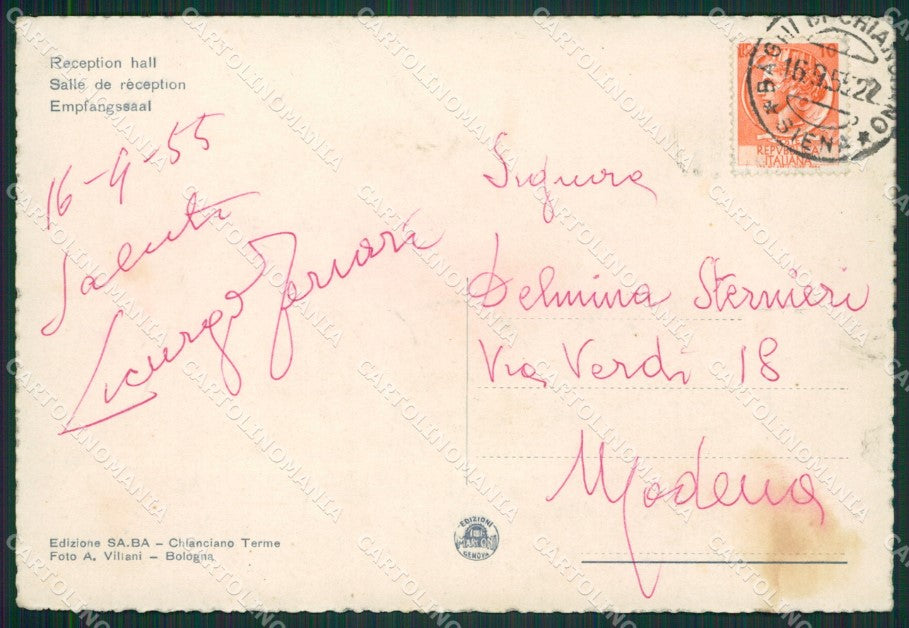 Reception hall
Salle de réception
Empfangssaal
16-9-55
Saluti
Licurgo Ferrari
Signora
Delmina Sternieri
Via Verdi 18
Modena
BAGNI DI CHIANCIANO
16.9.55.22
* SIENA *
10
REPVBBLICA
ITALIANA
Edizione SA.BA – Chianciano Terme
Foto A. Villani – Bologna
EDIZIONI
GENOVA
CARTOLINOMANIA